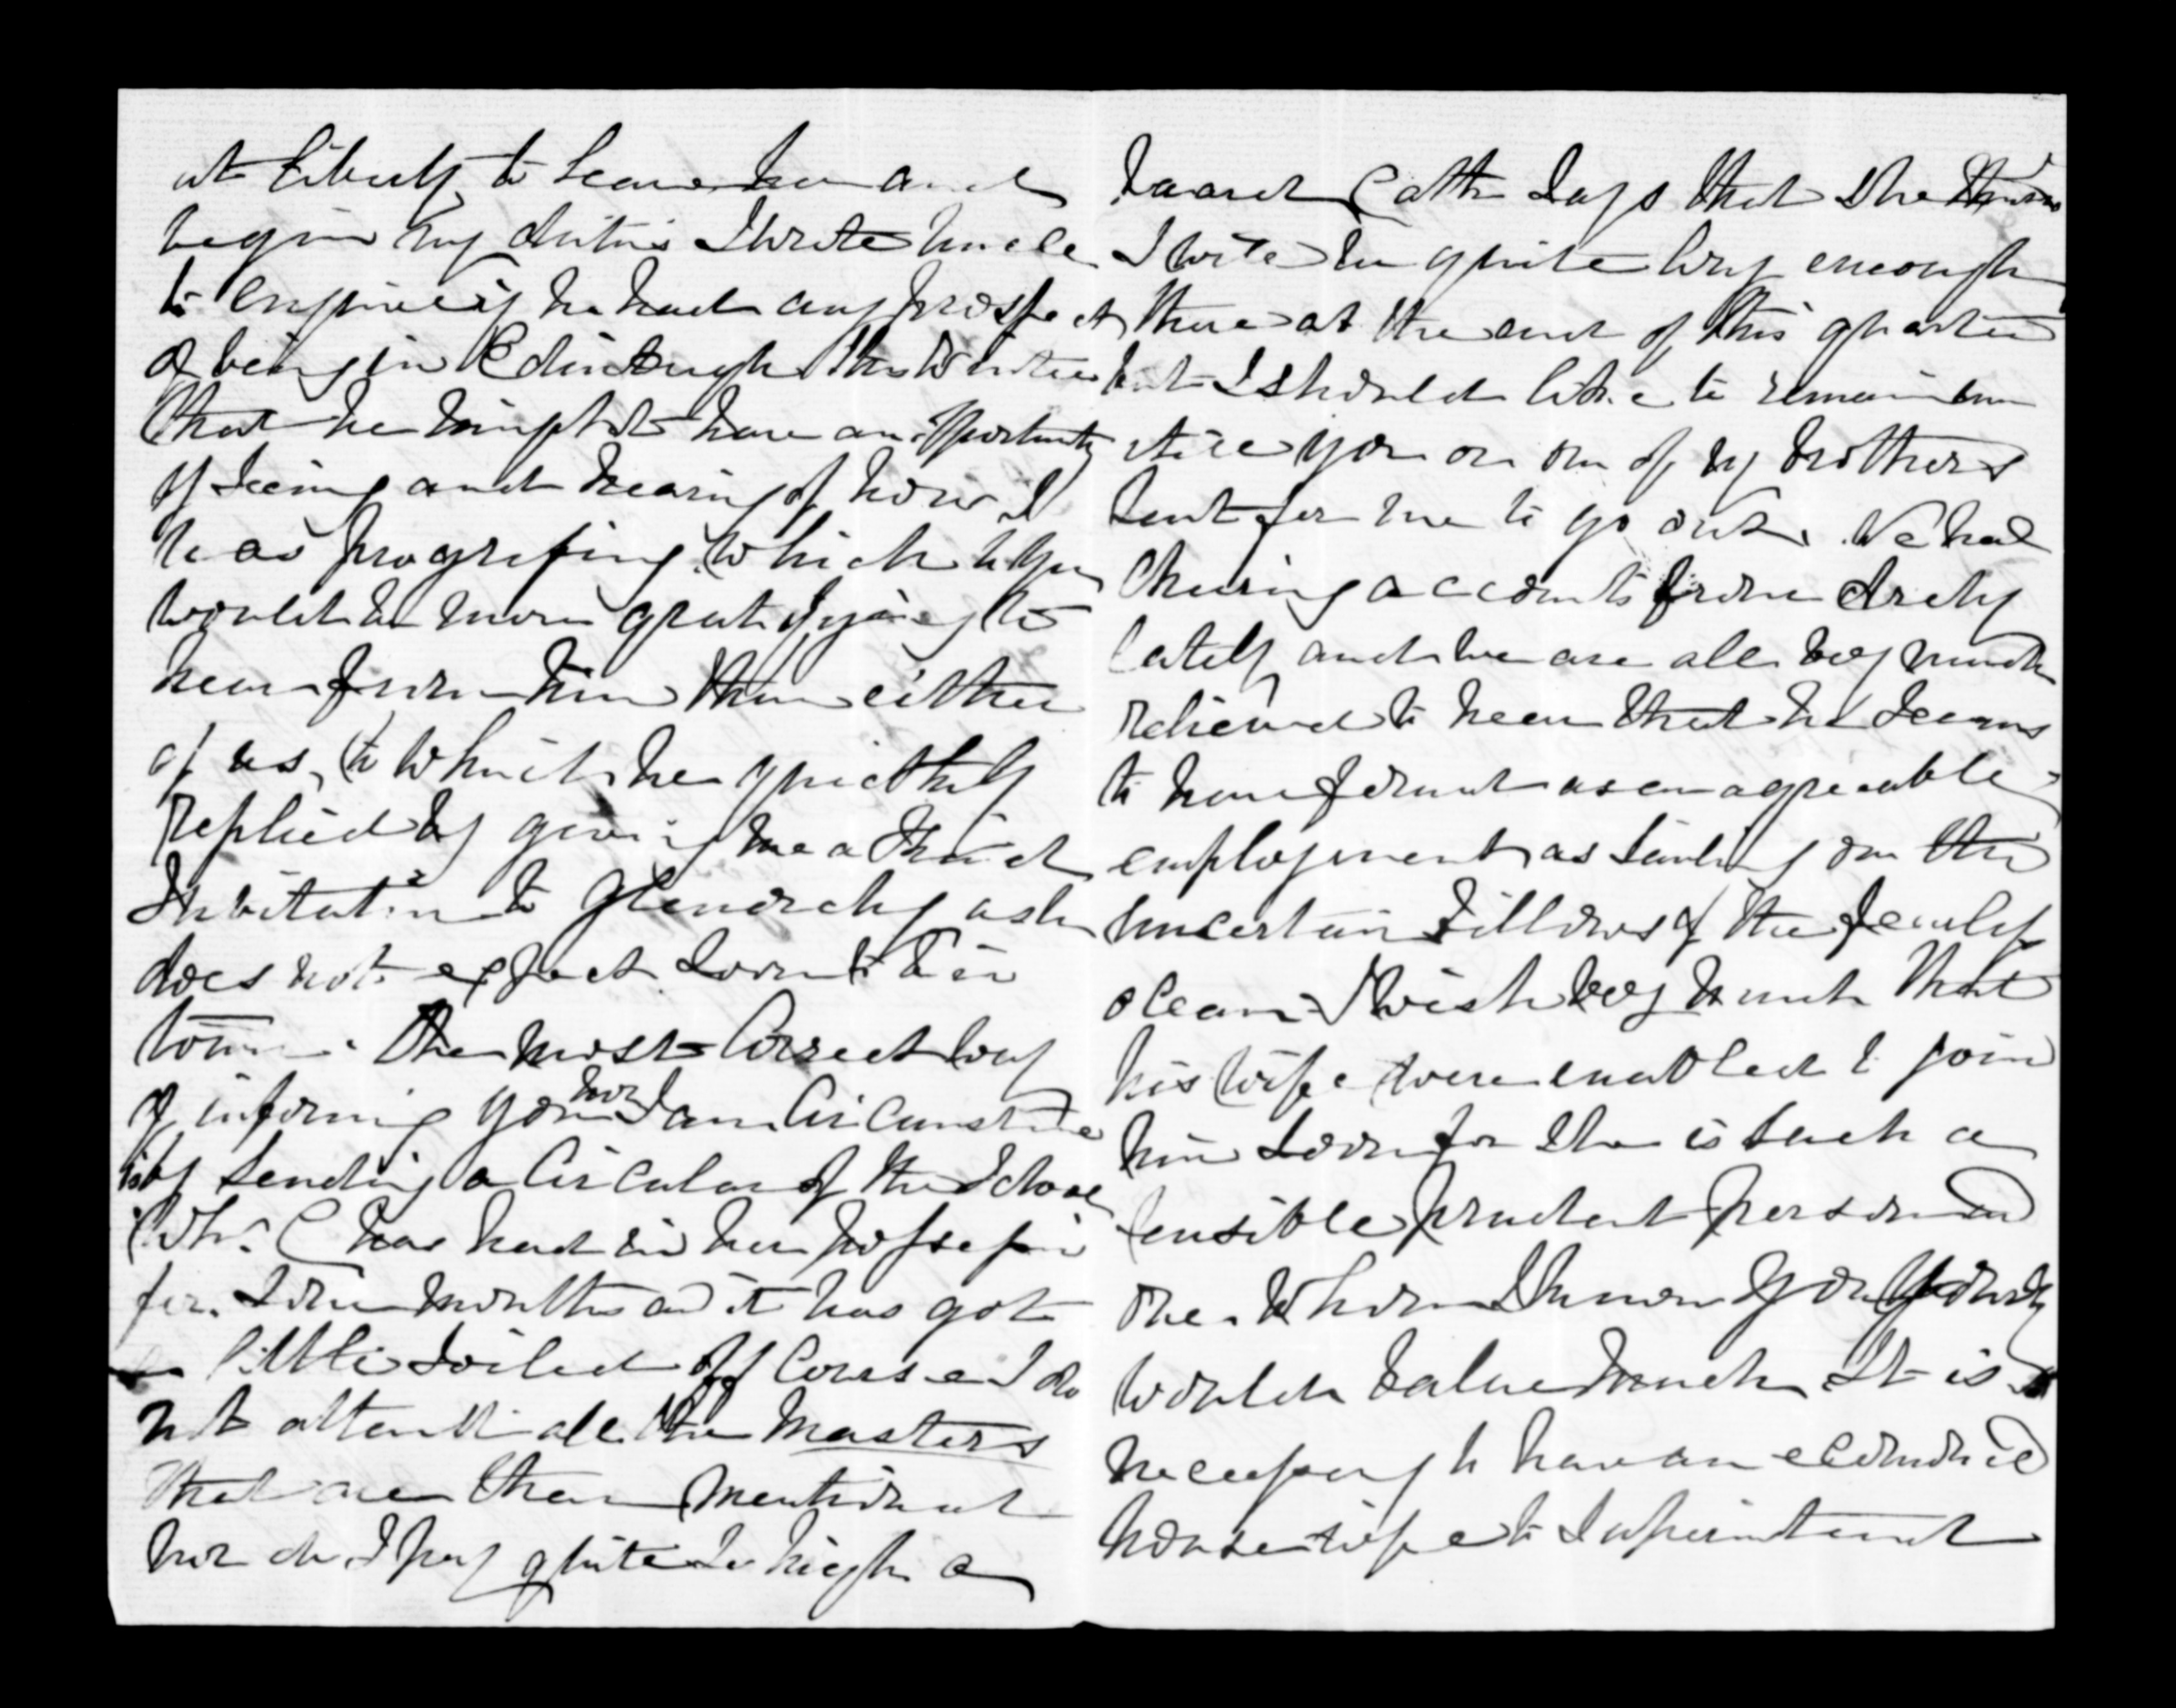 at liberty to leave her and
begin my duties I wrote Uncle
to enquire if he had any prospect
of being in Edinburgh this Winter
that he might have an opportunity
of seeing and hearing of how I
was progressing, which
would be more gratifying to
hear from him than either
of us, to which he quickly
replied by giving me a kind
Invitation to Glenorchy as he
does not expect soon to be in
town. The most Correct way
of informing you how I am Circumstanced
is by sending a Circular of the School
Mrs. C has had in her possession
for some months and it has got
a little soiled of Course I do
not attend all the Masters
that are there mentioned
nor do I pay quite so high a
board Cath says that she thinks
I will be quite long enough
there at the end of this quarter
but I should like to remain
till you or one of my brothers
sent for me to go out. We had
Cheering accounts from Archy
lately and we are all very much
relieved to hear that he seems
to have found as an agreeable
employment as sailing on the
uncertain billows of the
ocean I wish very much that
his wife were enabled to join
him soon for she is such a
sensible prudent person and
one whom I know you
would value much. It is so
necessary to have an economic
housewife to superintend